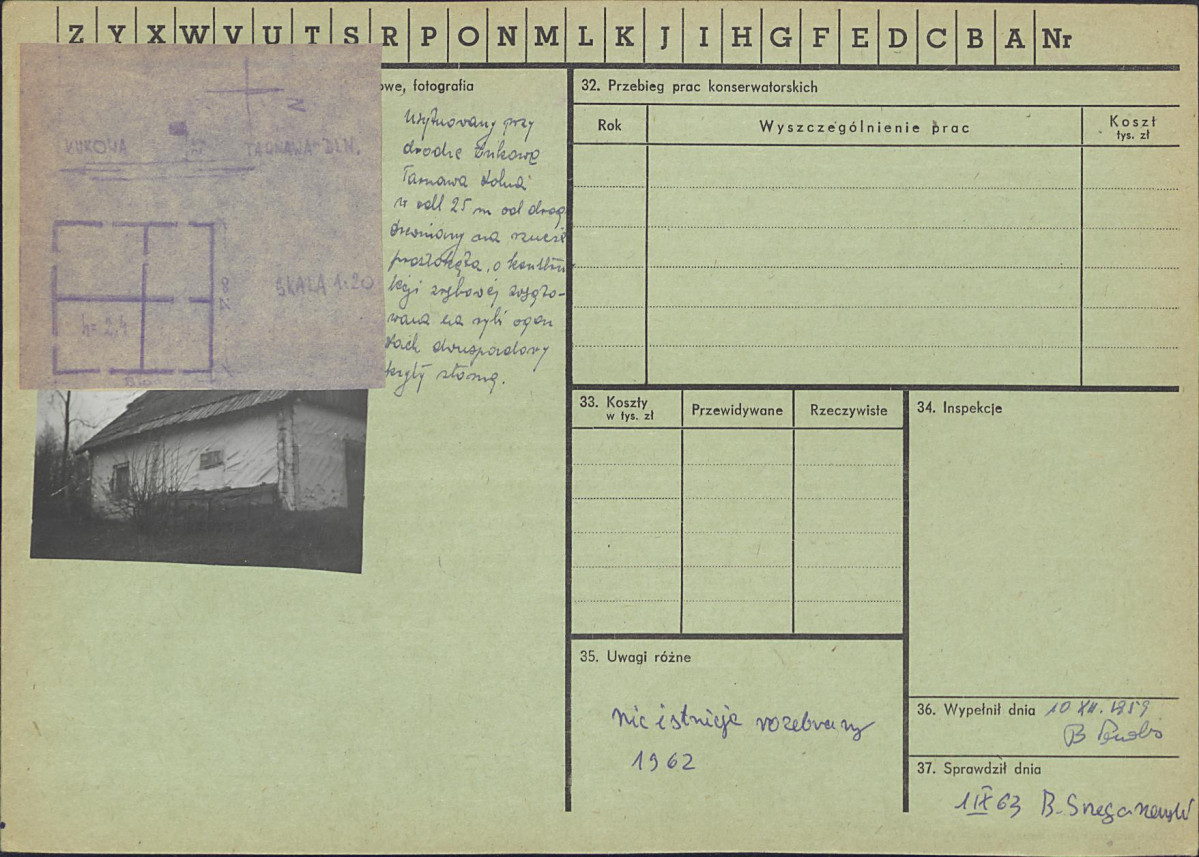 Z Y X W V U T S R P O N M L K J I H G F E D C B A Nr
owe, fotografia
N
ŻUKOWA TARNAWA DLN.
SKALA 1:20
h=2.4
Usytuowany przy
drodze Żukowa
Tarnawa dolna
w odl 25 m od drog
drewniany na rzucie
prostokąta, o konstru
kcji zrębowej węgło-
wana na rybi ogon
dach dwuspadowy
kryty słomą.
32. Przebieg prac konserwatorskich
Rok Wyszczególnienie prac Koszt
tys. zł
33. Koszty
w tys. zł Przewidywane Rzeczywiste
34. Inspekcje
35. Uwagi różne
nie istnieje rozebrany
1962
36. Wypełnił dnia 10 XII. 1959
B
37. Sprawdził dnia
1 IX 63 B.